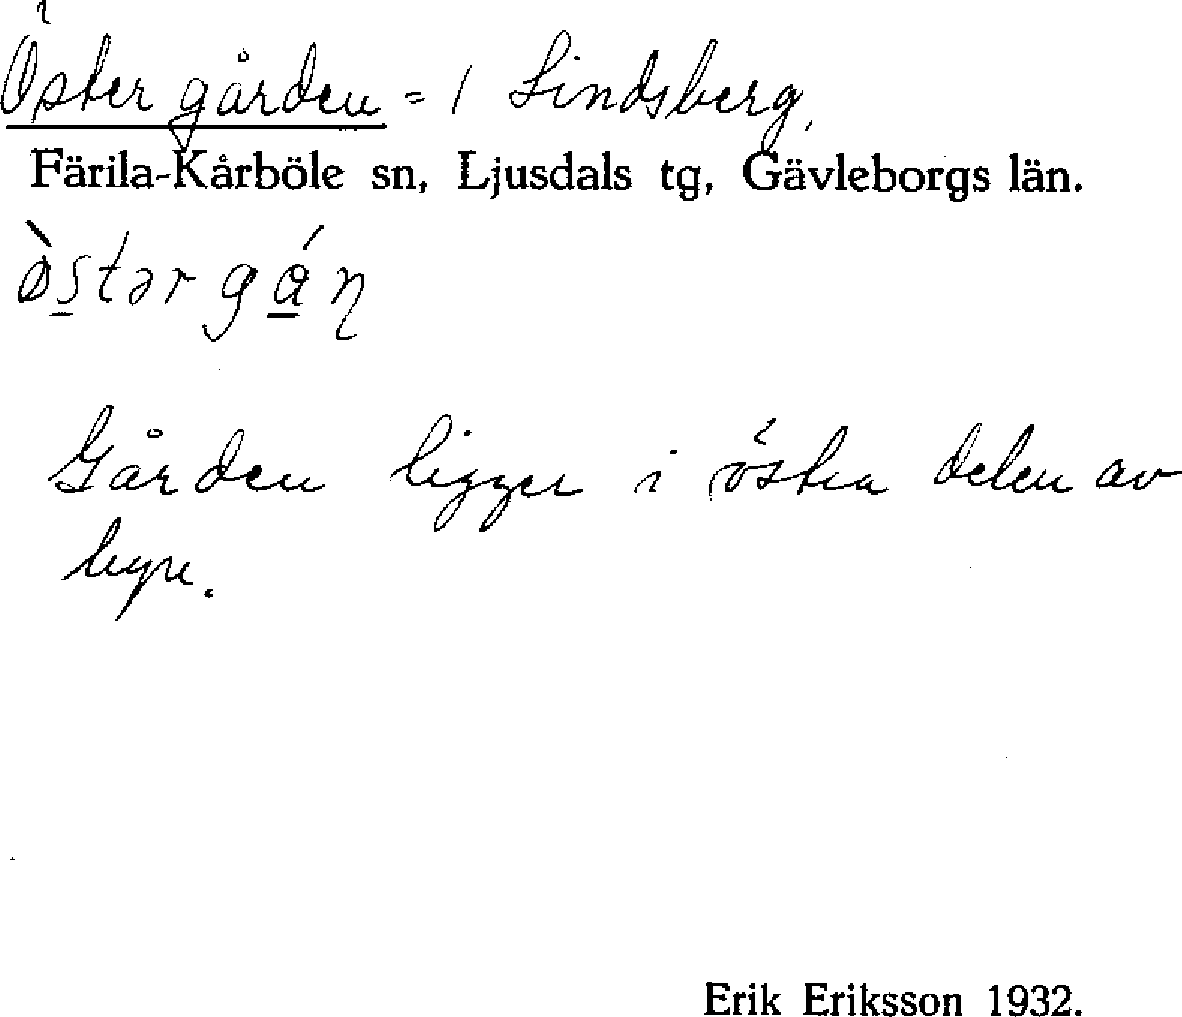 Östergården = 1 Lindsberg,
Färila-Kårböle sn, Ljusdals tg, Gävleborgs län.
ø̀stər gá̱ɳ
Gården ligger i östra delen av
byn.
Erik Eriksson 1932.